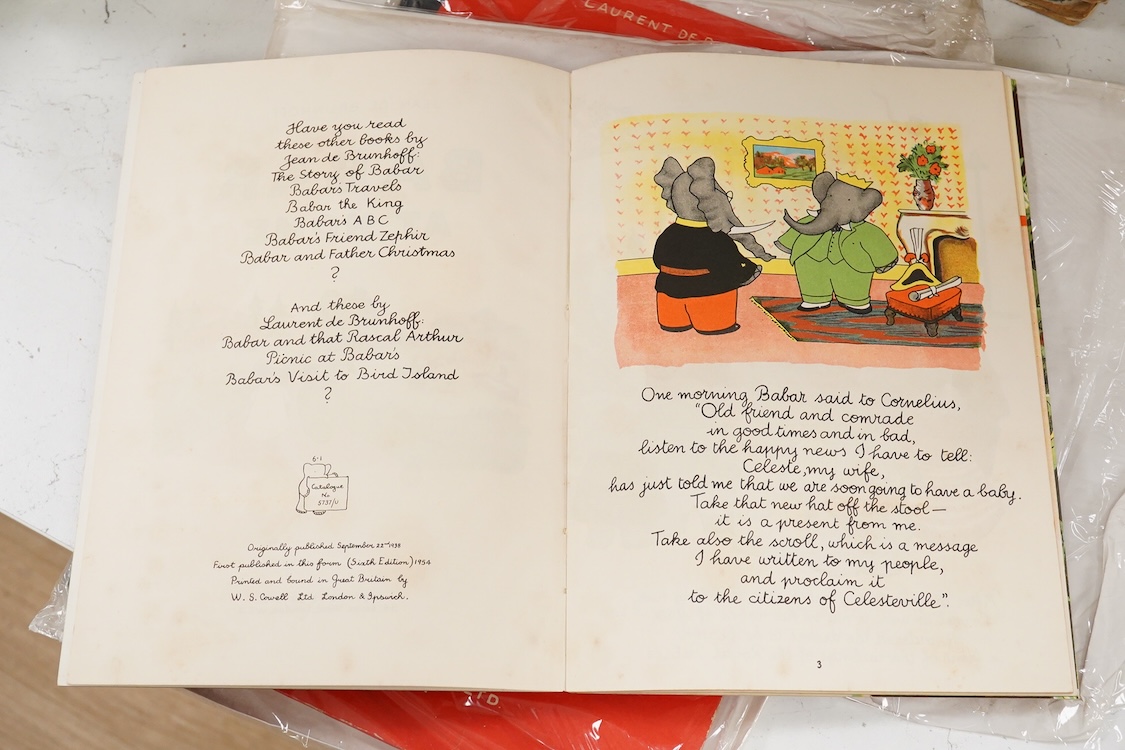 LAURENT DE
Have you read
these other books by
Jean de Brunhoff:
The Story of Babar
Babar's Travels
Babar the King
Babar's A B C
Babar's Friend Zephir
Babar and Father Christmas
?
And these by
Laurent de Brunhoff:
Babar and that Rascal Arthur
Picnic at Babar's
Babar's Visit to Bird Island
?
6-1
Catalogue
No
5737/U
Originally published September 22nd 1938
First published in this form (Sixth Edition) 1954
Printed and bound in Great Britain by
W. S. Cowell Ltd London & Ipswich.
One morning Babar said to Cornelius,
"Old friend and comrade
in good times and in bad,
listen to the happy news I have to tell:
Celeste, my wife,
has just told me that we are soon going to have a baby.
Take that new hat off the stool—
it is a present from me.
Take also the scroll, which is a message
I have written to my people,
and proclaim it
to the citizens of Celesteville".
3